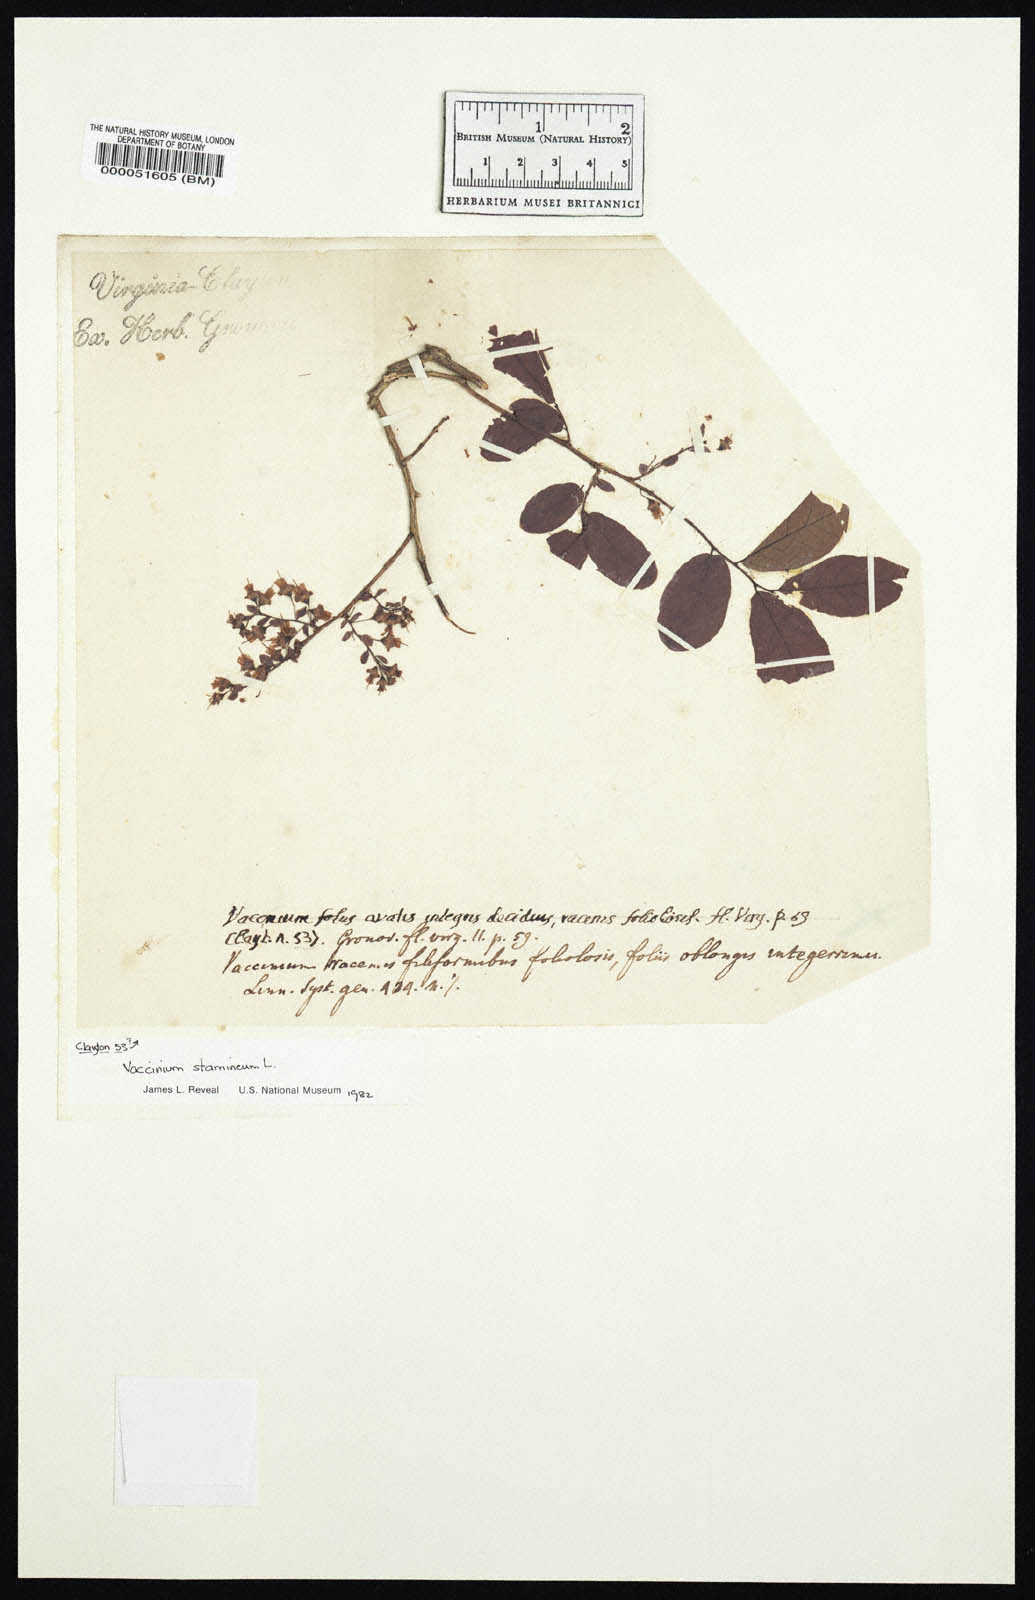 THE NATURAL HISTORY MUSEUM, LONDON
DEPARTMENT OF BOTANY
000051605 (BM)
1 2
BRITISH MUSEUM (NATURAL HISTORY)
1 2 3 4 5
HERBARIUM MUSEI BRITANNICI
Virginia-Clayton
Ex. Herb.
Vaccinium foliis ovatis integris deciduis, racemis fl. Virg. p. 69
n. 53). Gronov. fl. virg. II. p. 59.
Vaccinium racemis filiformibus foliolosis, foliis oblongis integerrimis.
Linn. Syst. gen.
Clayton 53?
Vaccinium stamineum L.
James L. Reveal U.S. National Museum 1982